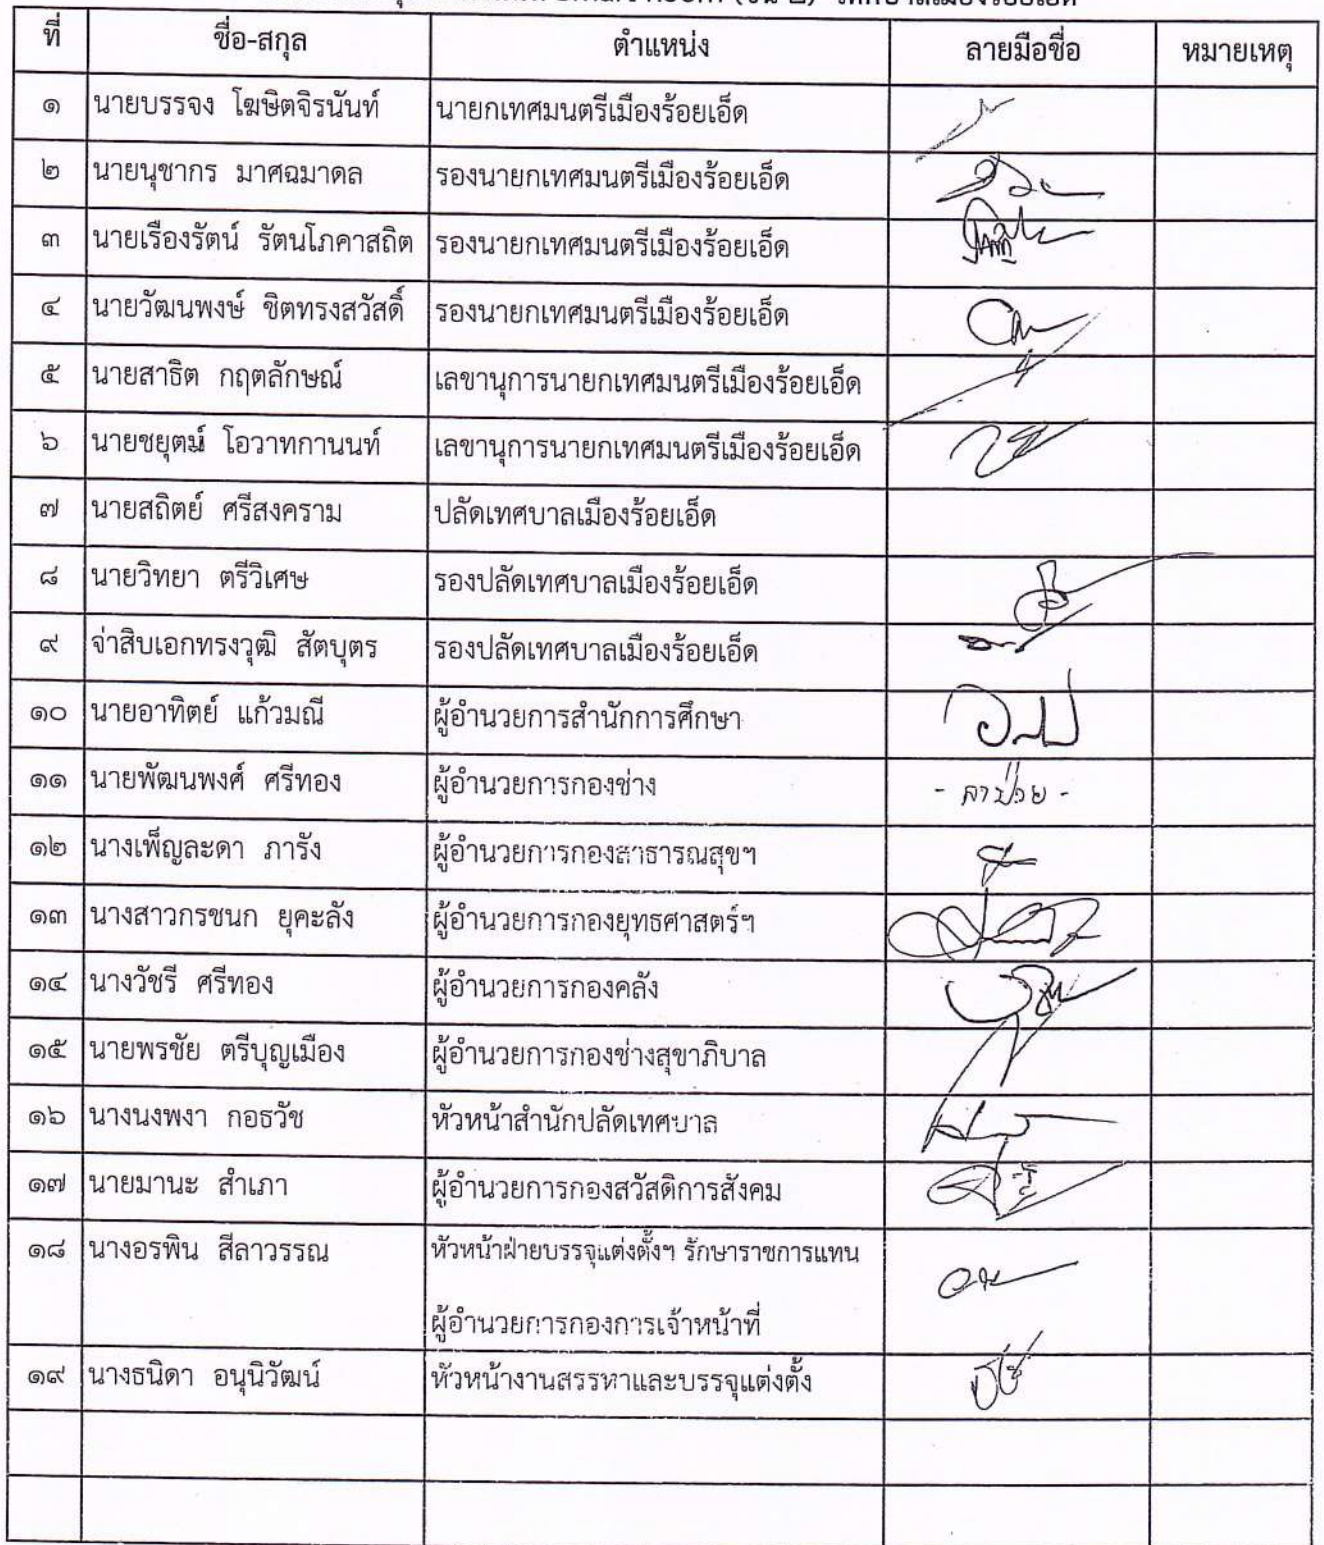 Smart Room (ชั้น ๒)
ที่ ชื่อ-สกุล ตำแหน่ง ลายมือชื่อ หมายเหตุ
๑ นายบรรจง โฆษิตจิรนันท์ นายกเทศมนตรีเมืองร้อยเอ็ด
๒ นายนุชากร มาศฉมาดล รองนายกเทศมนตรีเมืองร้อยเอ็ด
๓ นายเรืองรัตน์ รัตนโภคาสถิต รองนายกเทศมนตรีเมืองร้อยเอ็ด
๔ นายวัฒนพงษ์ ชิตทรงสวัสดิ์ รองนายกเทศมนตรีเมืองร้อยเอ็ด
๕ นายสาธิต กฤตลักษณ์ เลขานุการนายกเทศมนตรีเมืองร้อยเอ็ด
๖ นายชยุตม์ โอวาทกานนท์ เลขานุการนายกเทศมนตรีเมืองร้อยเอ็ด
๗ นายสถิตย์ ศรีสงคราม ปลัดเทศบาลเมืองร้อยเอ็ด
๘ นายวิทยา ตรีวิเศษ รองปลัดเทศบาลเมืองร้อยเอ็ด
๙ จ่าสิบเอกทรงวุฒิ สัตบุตร รองปลัดเทศบาลเมืองร้อยเอ็ด
๑๐ นายอาทิตย์ แก้วมณี ผู้อำนวยการสำนักการศึกษา
๑๑ นายพัฒนพงศ์ ศรีทอง ผู้อำนวยการกองช่าง - ลาป่วย -
๑๒ นางเพ็ญละดา ภารัง ผู้อำนวยการกองสาธารณสุขฯ
๑๓ นางสาวกรชนก ยุคะลัง ผู้อำนวยการกองยุทธศาสตร์ฯ
๑๔ นางวัชรี ศรีทอง ผู้อำนวยการกองคลัง
๑๕ นายพรชัย ตรีบุญเมือง ผู้อำนวยการกองช่างสุขาภิบาล
๑๖ นางนงพงา กอธวัช หัวหน้าสำนักปลัดเทศบาล
๑๗ นายมานะ สำเภา ผู้อำนวยการกองสวัสดิการสังคม
๑๘ นางอรพิน สีลาวรรณ หัวหน้าฝ่ายบรรจุแต่งตั้งฯ รักษาราชการแทน
ผู้อำนวยการกองการเจ้าหน้าที่
๑๙ นางธนิดา อนุนิวัฒน์ หัวหน้างานสรรหาและบรรจุแต่งตั้ง